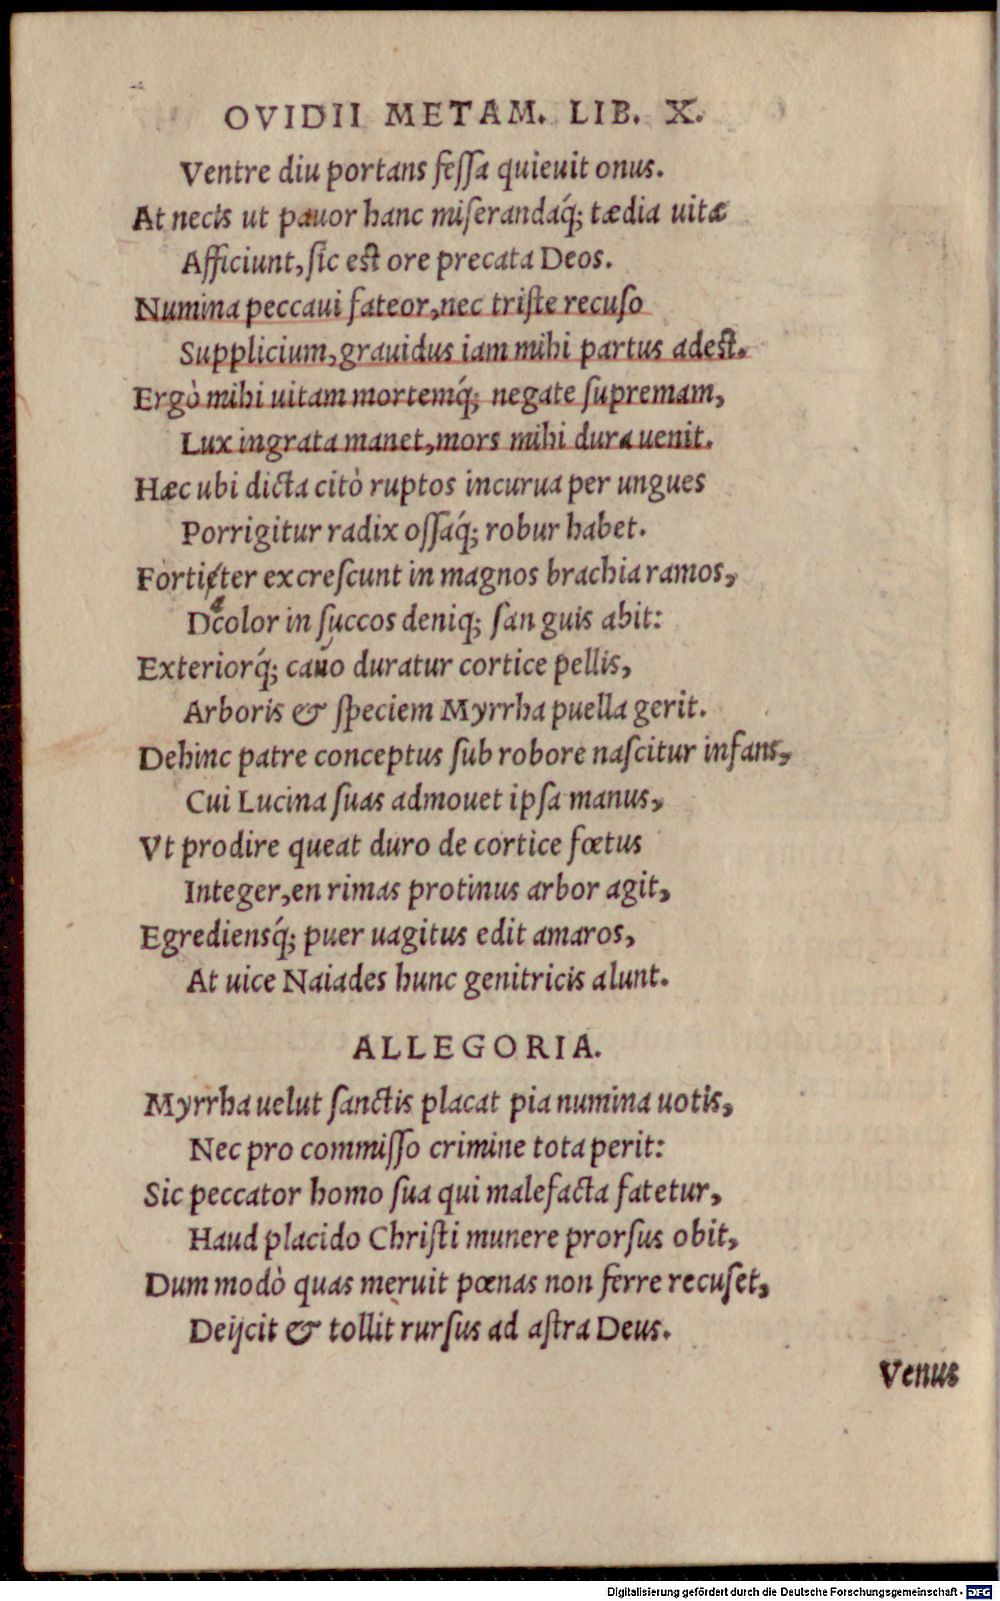 OVIDII METAM. LIB. X.
Ventre diu portans feſſa quieuit onus.
At necis ut pauor hanc miſerandaq́; tædia uitæ
Afficiunt, ſic eſt ore precata Deos.
Numina peccaui fateor, nec triſte recuſo
Supplicium, grauidus iam mihi partus adeſt.
Ergò mihi uitam mortemq́; negate ſupremam,
Lux ingrata manet, mors mihi dura uenit.
Hæc ubi dicta citò ruptos incurua per ungues
Porrigitur radix oſſaq́; robur habet.
Fortiter excreſcunt in magnos brachia ramos,
Dcolor in ſuccos deniq; ſan guis abit:
Exteriorq́; cauo duratur cortice pellis,
Arboris & ſpeciem Myrrha puella gerit.
Dehinc patre conceptus ſub robore naſcitur infans,
Cui Lucina ſuas admouet ipſa manus,
Vt prodire queat duro de cortice fœtus
Integer, en rimas protinus arbor agit,
Egrediensq́; puer uagitus edit amaros,
At uice Naiades hunc genitricis alunt.
ALLEGORIA.
Myrrha uelut ſanctis placat pia numina uotis,
Nec pro commiſſo crimine tota perit:
Sic peccator homo ſua qui malefacta fatetur,
Haud placido Chriſti munere prorſus obit,
Dum modò quas meruit pœnas non ferre recuſet,
Deijcit & tollit rurſus ad aſtra Deus.
Venus
Digitalisierung gefördert durch die Deutsche Forschungsgemeinschaft - DFG